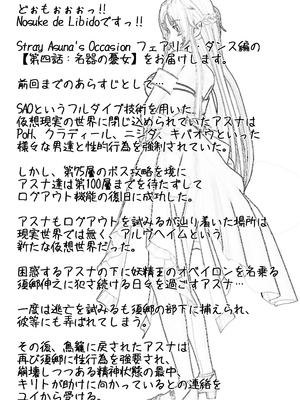 どぉもぉぉぉっ!!
Nosuke de Libidoですっ!!
Stray Asuna's Occasion フェアリィ・ダンス編の
【第四話：名器の憂女】をお届けします。
前回までのあらすじとして…
SAOというフルダイブ技術を用いた
仮想現実の世界に閉じ込められていたアスナは
PoH、クラディール、ニシダ、キバオウといった
様々な男達と性的行為を強制されていた。
しかし、第75層のボス攻略を境に
アスナ達は第100層までを待たずして
ログアウト機能の復旧に成功した。
アスナもログアウトを試みるが辿り着いた場所は
現実世界では無く、アルヴヘイムという
新たな仮想世界だった。
困惑するアスナの下に妖精王のオベイロンを名乗る
須郷伸之に犯され続ける日々を過ごすアスナ…
一度は逃亡を試みるも須郷の部下に捕えられ、
彼等にも弄ばれてしまう。
その後、鳥籠に戻されたアスナは
再び須郷に性行為を強要され、
崩壊しつつある精神状態の最中、
キリトが助けに向かっているとの連絡を
ユイから受ける。